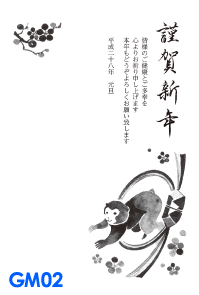 謹賀新年
皆様のご健康とご多幸を
心よりお祈り申し上げます
本年もどうぞよろしくお願い致します
平成二十八年　元旦
GM02